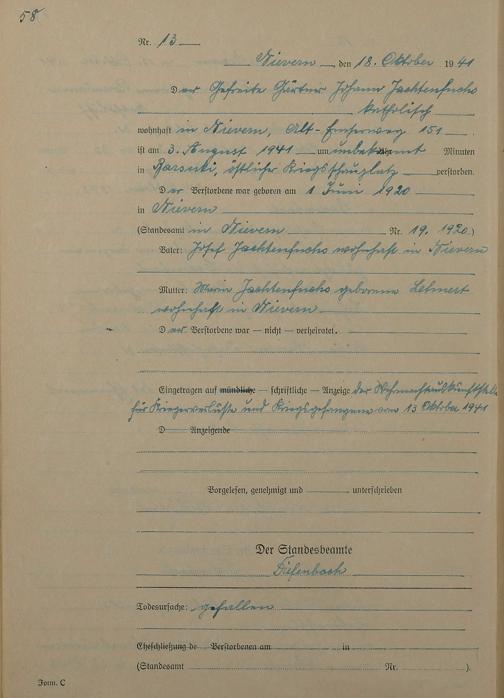 58
Nr. 13
Nievern, den 18. Oktober 1941
Der Gefreite Gärtner Johann Jachtenfuchs
katholisch
wohnhaft in Nievern, Alt-Emserweg 151
ist am 3. August 1941 um unbekannt Minuten
in östlicher Kriegsschauplatz verstorben.
Der Verstorbene war geboren am 1 Juni 1920
in Nievern
(Standesamt in Nievern Nr. 19. 1920.)
Vater: Josef Jachtenfuchs wohnhaft in Nievern
Mutter: Maria Jachtenfuchs geborene Lehnert
wohnhaft in Nievern
Der Verstorbene war — nicht — verheiratet.
Eingetragen auf mündliche — schriftliche — Anzeige der Wehrmachtauskunftstelle
für Kriegerverluste und Kriegsgefangene vom 13 Oktober 1941
D Anzeigende
Vorgelesen, genehmigt und unterschrieben
Der Standesbeamte
Diefenbach
Todesursache: gefallen
Eheschließung de Verstorbenen am in
(Standesamt Nr. ).
Form. C